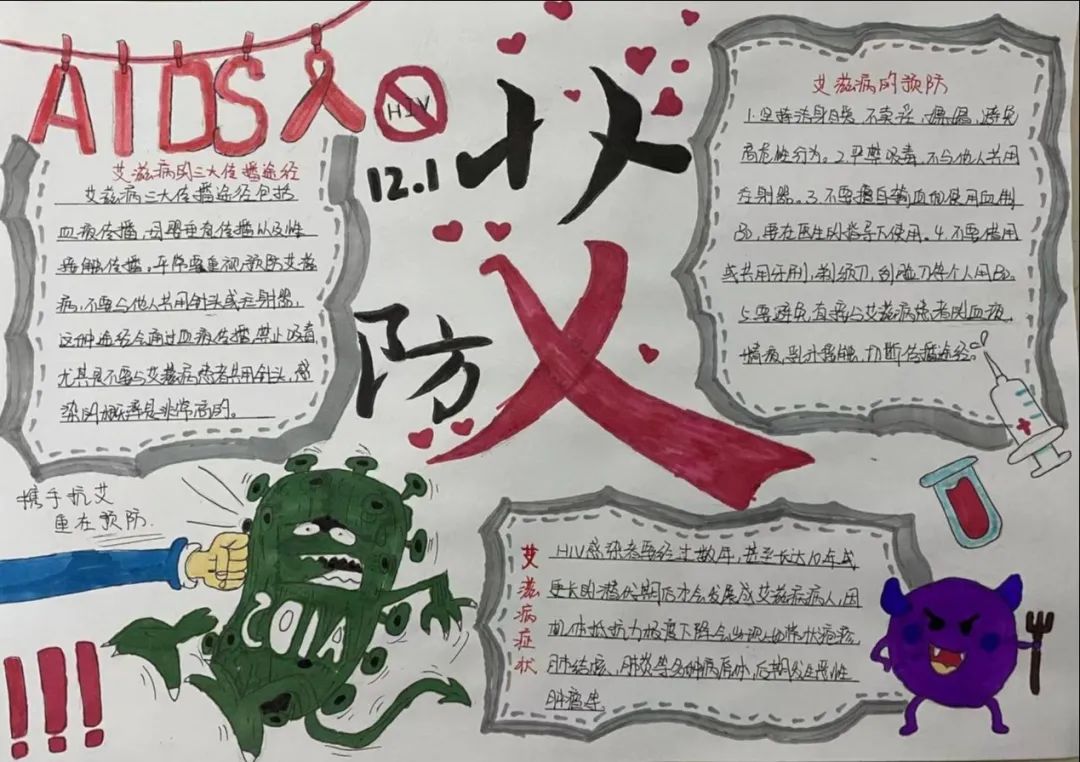 AIDS
HIV
12.1
防艾
艾滋病的三大传播途径
艾滋病三大传播途径包括
血液传播,母婴垂直传播以及性
接触传播。平常要重视预防艾滋
病,不要与他人共用针头或注射器,
这种途径会通过血液传播,禁止吸毒
尤其是不要与艾滋病患者共用针头,感
染的概率是非常高的。
艾滋病的预防
1.坚持洁身自爱,不卖淫、嫖娼,避免
高危性行为。2.严禁吸毒,不与他人共用
注射器。3.不要擅自输血和使用血制
品,要在医生的指导下使用。4.不要借用
或共用牙刷,剃须刀,刮脸刀等个人用品。
5.要避免直接与艾滋病患者的血液,
精液,乳汁接触,切断传播途径。
携手抗艾
重在预防.
AIDS
!!!
艾滋病症状
HIV感染者要经过数年,甚至长达10年或
更长的潜伏期后才会发展成艾滋病病人,因
机体抵抗力极度下降会出现
肺结核、肺炎等多种病